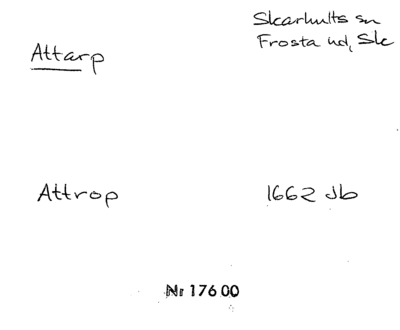 Skarhults sn
Frosta hd, Sk
Attarp
Attrop
1662 Jb
Nr 176 00